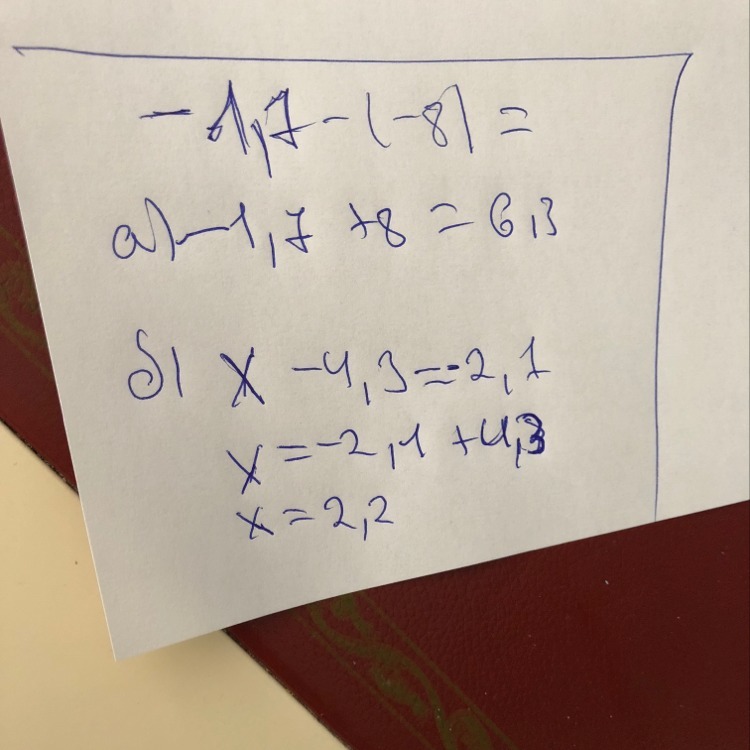 -1,7-(-8)=
а)-1,7+8=6,3
б) x-4,3=-2,1
x=-2,1+4,3
x=2,2